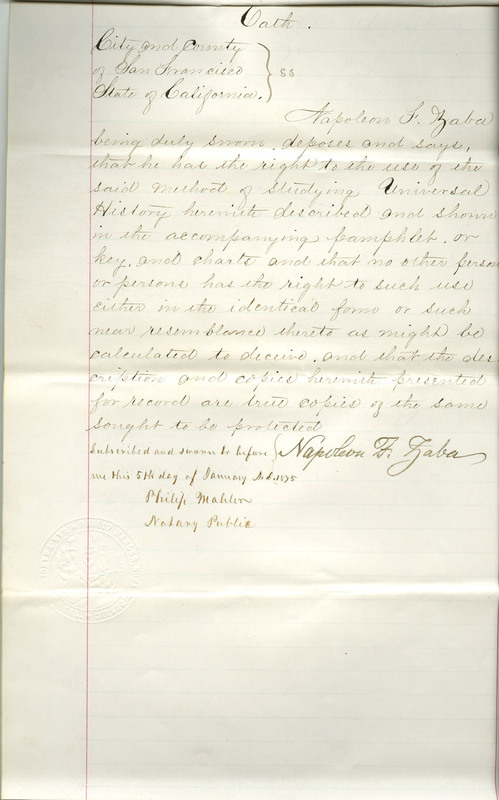 Oath.
City and County
of San Francisco } ss
State of California.
Napoleon F. Zaba
being duly sworn, deposes and says,
that he has the right to the use of the
said Method of Studying Universal
History herewith described and shown
in the accompanying pamphlet, or
key, and charts and that no other person
or persons has the right to such use
either in the identical form or such
near resemblance thereto as might be
calculated to deceive, and that the des
cription and copies herewith presented
for record are true copies of the same
sought to be protected
Subscribed and sworn to before } Napoleon F. Zaba
me this 5th day of January A.d. 1875
Philip Mahler
Notary Public